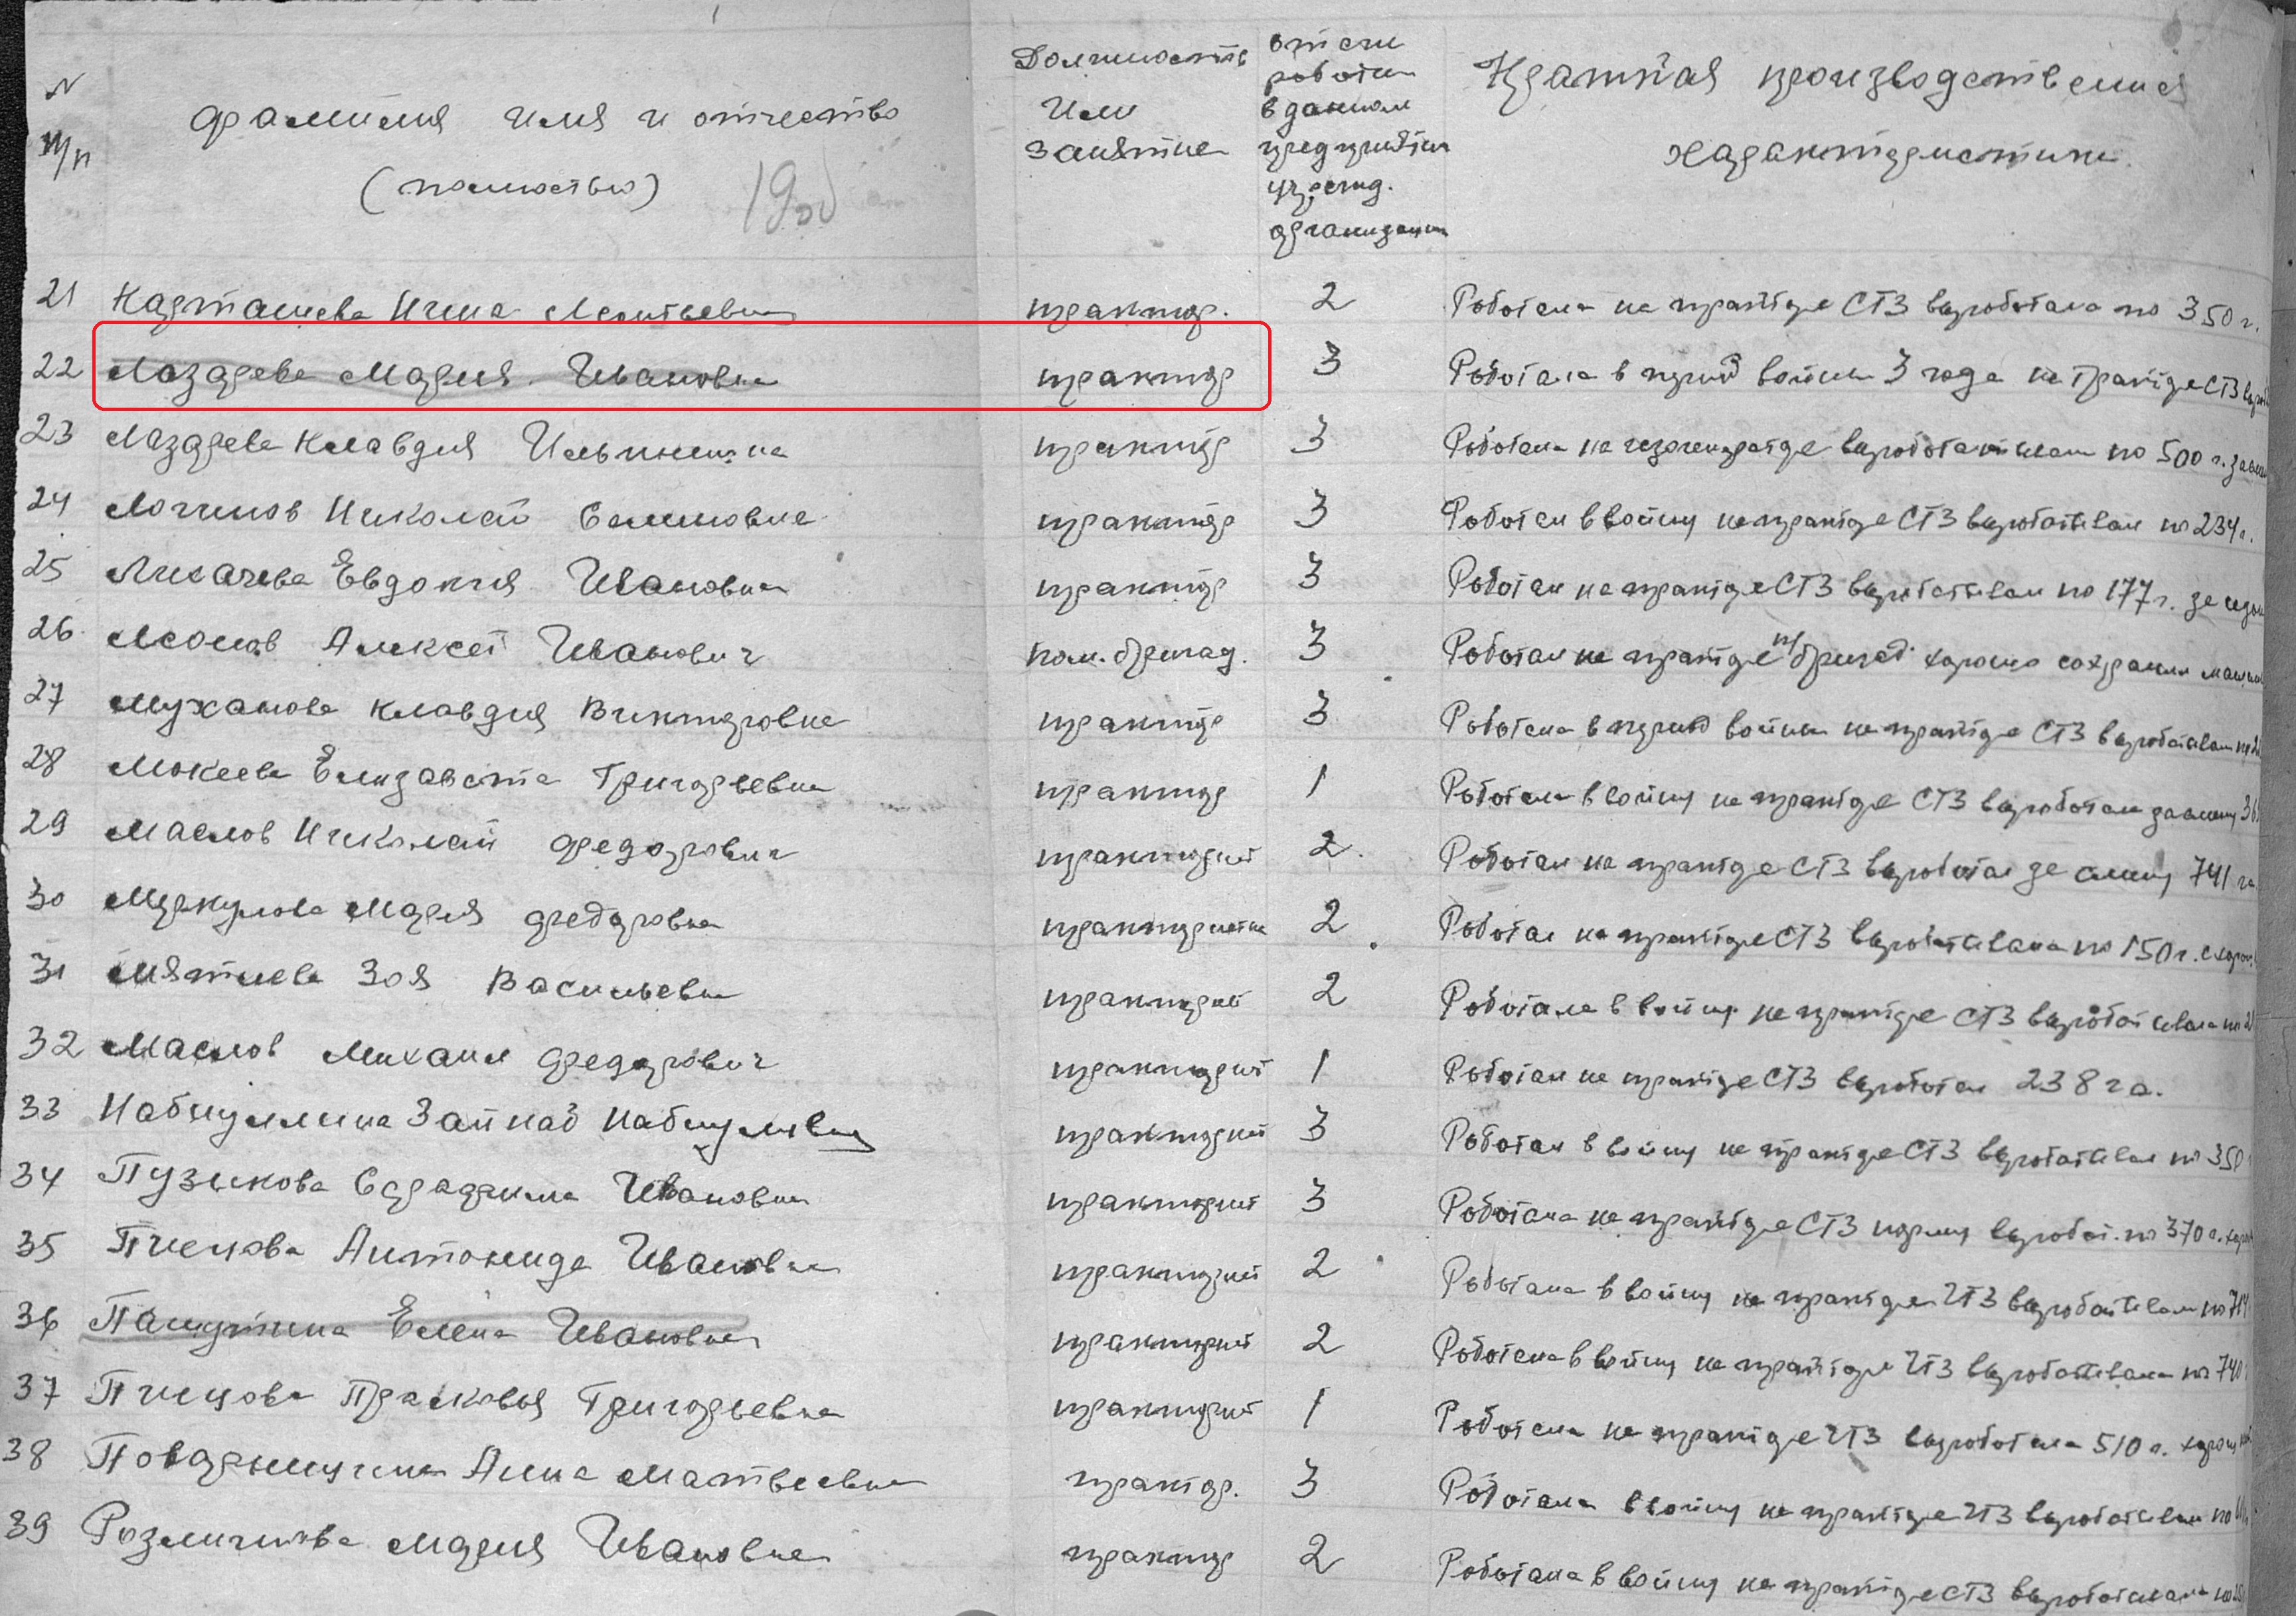 N п/п Фамилия имя и отчество (полностью) Должность или занятие в данном предприятии учрежд. организации Краткая производственная характеристика.
21 Карташева Нина Леонтьевна трактор. 2 Работала на тракторе СТЗ выработала по 350 г.
22 Лазарева Мария Ивановна трактор 3 Работала в период войны 3 года на тракторе СТЗ
23 Лазарева Клавдия Ильинична трактор 3 Работала на выработала по 500 г.
24 Логинов Николай трактор 3 Работал в войну на тракторе СТЗ вырабатывал по 234 г.
25 Лихачева Евдокия Ивановна трактор 3 Работал на тракторе СТЗ вырабатывал по 177 г. за
26 Леонов Алексей Иванович пом. бригад. 3 Работал на тракторе п/бригад. хорошо сохранял
27 Муханова Клавдия Викторовна трактор 3 Работала в период войны на тракторе СТЗ вырабатывал
28 Мокеева Елизавета Григорьевна трактор 1 Работала в войну на тракторе СТЗ выработала за смену
29 Маслов Николай Федорович тракторист 2 Работал на тракторе СТЗ выработал за смену 741 га
30 Меркулова Мария Федоровна трактористка 2 Работал на тракторе СТЗ вырабатывала по 150 г.
31 Мятлева Зоя Васильевна тракторист 2 Работала в войну на тракторе СТЗ вырабатывала по
32 Маслов Михаил Федорович тракторист 1 Работал на тракторе СТЗ выработал 238 га.
33 Набиуллина Зайнаб тракторист 3 Работал в войну на тракторе СТЗ вырабатывал по 350
34 Пузыкова Ивановна тракторист 3 Работала на тракторе СТЗ норму выработ. по 370 г.
35 Антонида Ивановна тракторист 2 Работала в войну на тракторе ЧТЗ вырабатывал по
36 Елена Ивановна тракторист 2 Работала в войну на тракторе ЧТЗ вырабатывала по 740
37 Прасковья Григорьевна тракторист 1 Работала на тракторе ЧТЗ выработала 510 г.
38 Анна Матвеевна трактор. 3 Работала в войну на тракторе ЧТЗ вырабатывал по
39 Мария Ивановна трактор 2 Работала в войну на тракторе СТЗ вырабатывала по